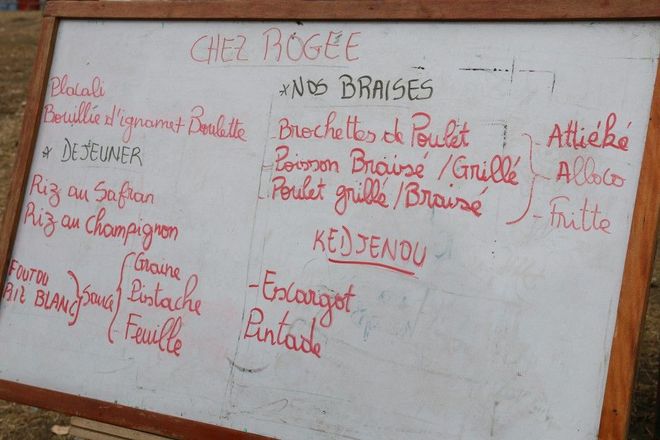 CHEZ ROGEE
Placali
Bouillie d'igname + Boulette
* DEJEUNER
Riz au Safran
Riz au Champignon
FOUTOU
RIZ BLANC
Sauce
- Graine
- Pistache
- Feuille
* NOS BRAISES
- Brochettes de Poulet
- Poisson Braisé / Grillé
- Poulet grillé / Braisé
- Attiéké
- Alloco
- Fritte
KEDJENOU
- Escargot
Pintade